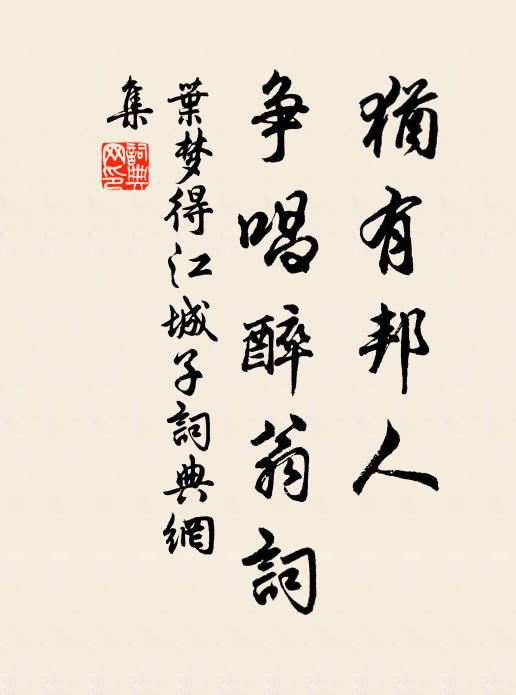 猶有邦人
争唱醉翁詞
葉梦得江城子詞典網
集
詞典
网印